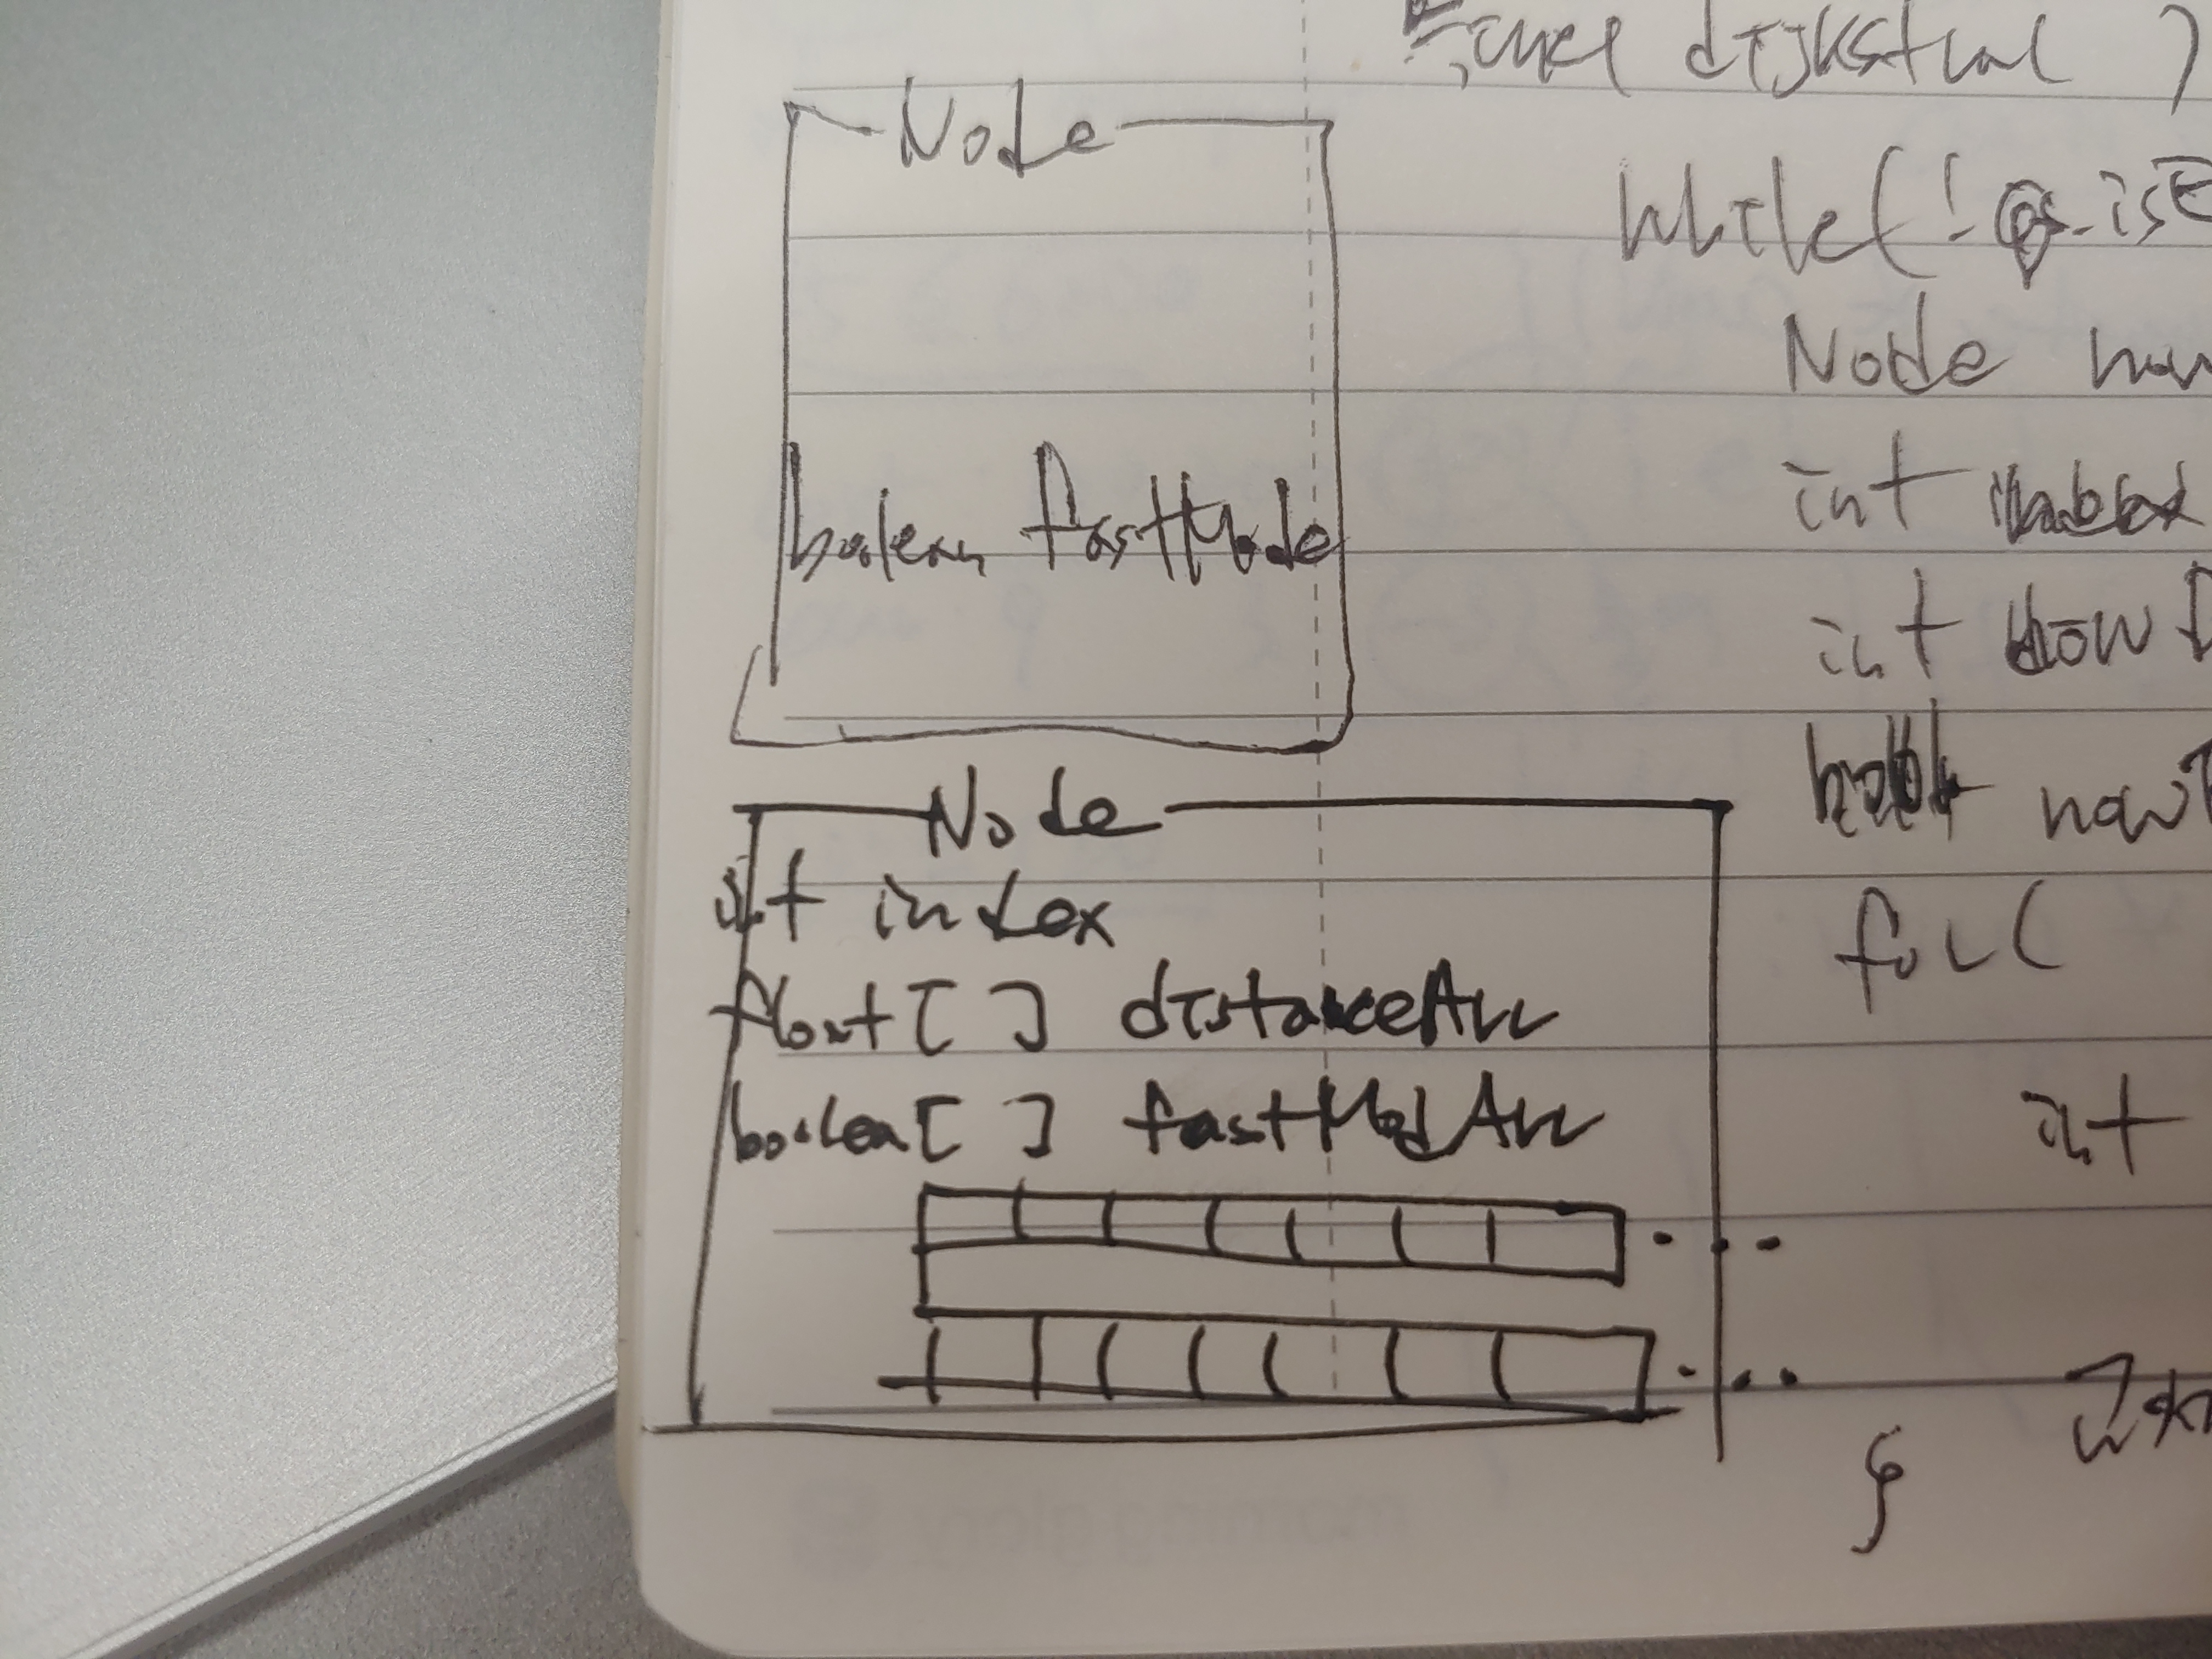 Node
boolean fastMode
Node
int index
float[ ] distanceArr
boolean[ ] fastModArr
dijkstra( )
while( ! isE
Node now
int
int now
now
for(
int
}
morning glory